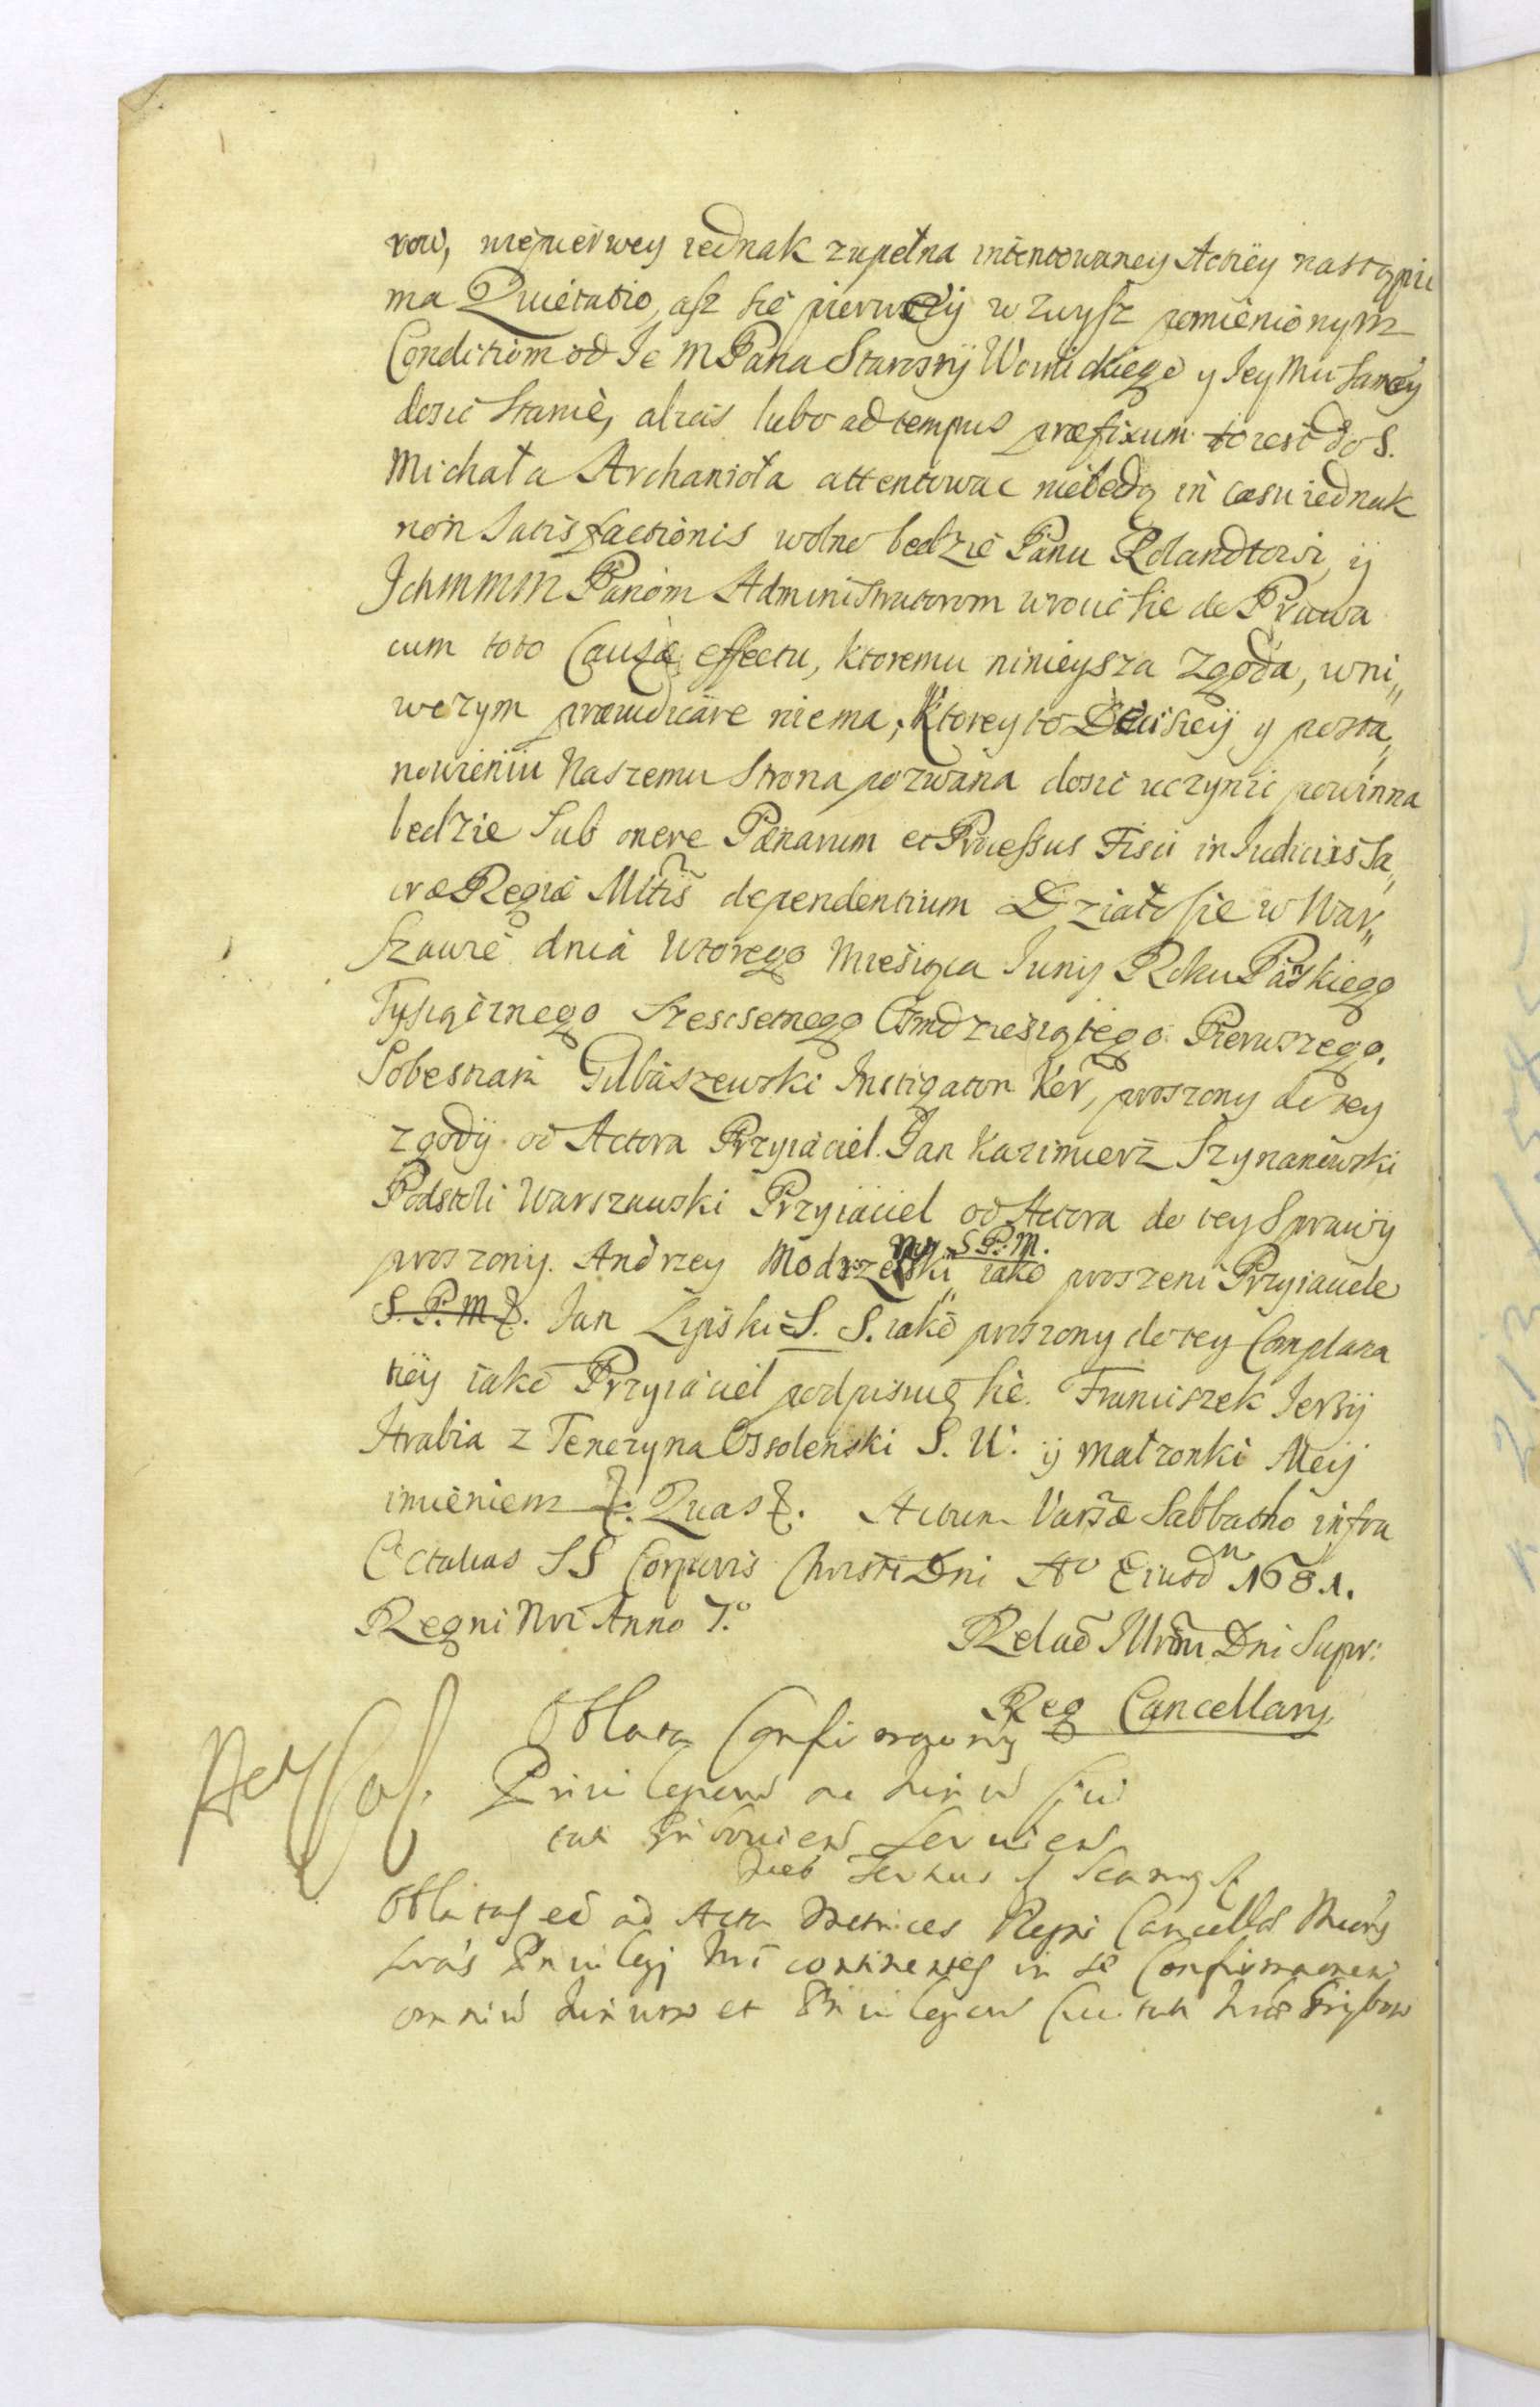 row, niepierwey iednak zupełna intentowaney Actiey nastąpić
ma Quietatio, asz sie pierwey wzwysz pomienionym
Conditiom od Je M Pana Starosty Woinickiego y Jey Mci samey
dosić stanie, alias lubo ad tempus præfixum to iest do S.
Michała Archanioła attentować niebedą in casu iednak
non satisfactionis wolno bedzie Panu Rolandtowi, ij
Ichmmm Panom Administratorom wrocić sie do Prawa
cum toto Causæ effectu, ktoremu ninieysza zgoda, wni„
wczym præiudicare niema; Ktorey to Decisiey y posta„
nowieniu Naszemu Strona pozwana dosić uczynić powinna
bedzie sub onere Pœnarum et Processus Fisci in Iudiciis Sa„
cræ Regiæ Mttis dependentium Działo sie w War„
szawie dnia Wtorego Miesiąca Iunij Roku Pańskiego
Tysiącznego Szescsetnego Osmdziesiątego Pierwszego.
Sobestian Gilbaszewski Instigator Kor, proszony do tey
zgody od Actora Przyiaciel. Jan Kazimierz Szymanowski
Podstoli Warszawski Przyiaciel od Actora do tey Sprawy
proszony. Andrzey Modrzewski S. P. M. iako proszeni Przyiaciele
S. P. M. Jan Lipski S. S. iako proszony do tey Complana
tiey iako Przyiaciel podpisuię sie. Franciszek Jerzy
Hrabia z Tenczyna Ossolenski S. W. ij małzonki Meij
imieniem Quas. Actum Varsæ Sabbatho infra
Octavas SS Corporis Christi Dni Ao Eiusdm 1681.
Regni Nri Anno 7.o
Relao Illrmi Dni Supr:
Reg Cancellarij
Oblata Confirmationis
Privilegiorum ac Iurium Civi
tati Gribovien servien
Oblatas eē ad Acta Metrices Regni Cancellas Meores
Lras Privilegij Nri continentes in se Confirmationem
omnium Iurium et Privilegiorum Civitati Nrae Gribow